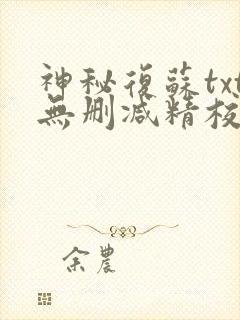 神秘復蘇txt
無删减精校
余農